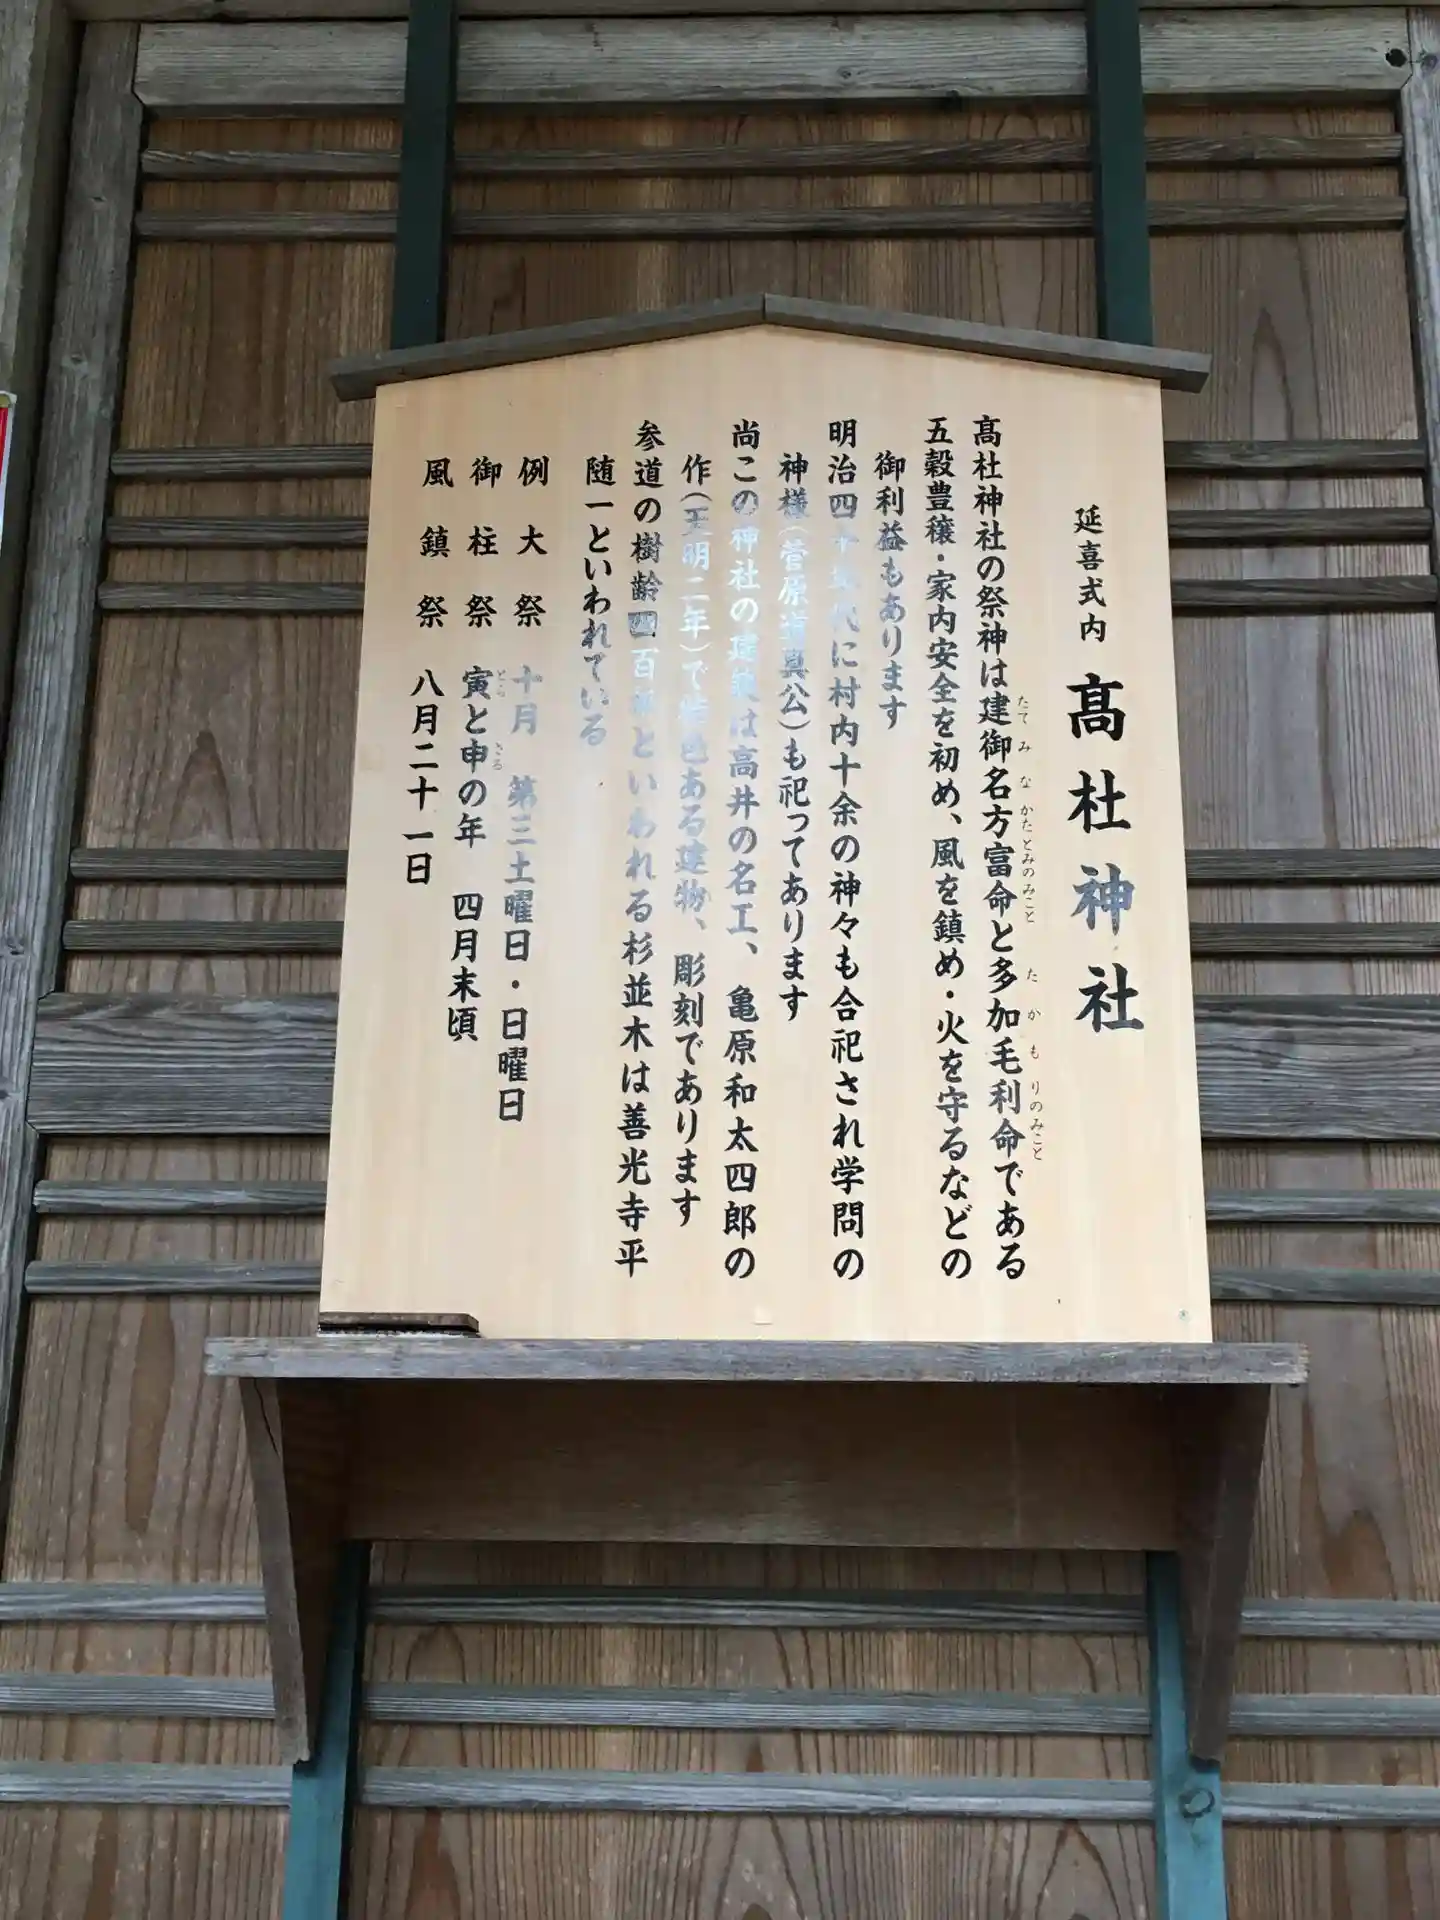 延喜式内 髙杜神社
髙杜神社の祭神は建御名方富命と多加毛利命である
たてみなかたとみのみこと
たかもりのみこと
五穀豊穣・家内安全を初め、風を鎮め・火を守るなどの
御利益もあります
明治四十年代に村内十余の神々も合祀され学問の
神様(菅原道真公)も祀ってあります
尚この神社の建築は高井の名工、亀原和太四郎の
作(天明二年)で特色ある建物、彫刻であります
参道の樹齢四百年といわれる杉並木は善光寺平
随一といわれている
例大祭 十月 第三土曜日・日曜日
御柱祭 寅と申の年 四月末頃
とら
さる
風鎮祭 八月二十一日